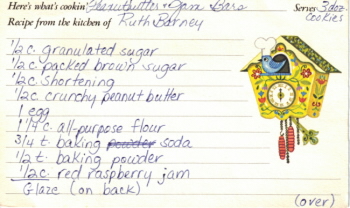 Here's what's cookin' Peanutbutter & Jam Bars Serves 3 doz. cookies
Recipe from the kitchen of Ruth Barney
1/2 c. granulated sugar
1/2 c. packed brown sugar
1/2 c. shortening
1/2 c. crunchy peanut butter
1 egg
1 1/4 c. all-purpose flour
3/4 t. baking powder soda
1/2 t. baking powder
1/2 c. red raspberry jam
Glaze (on back)
(over)